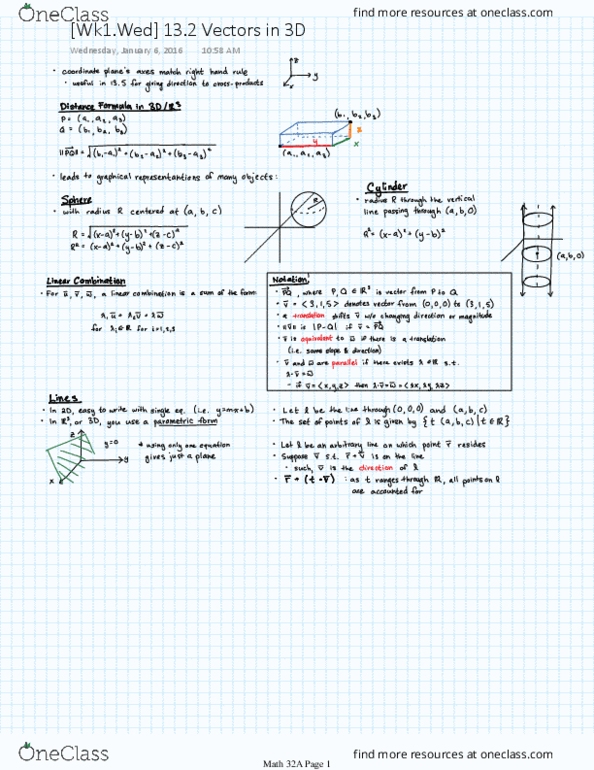 OneClass
find more resources at oneclass.com
[Wk1.Wed] 13.2 Vectors in 3D
Wednesday, January 6, 2016 10:58 AM
• coordinate plane's axes match right hand rule
• useful in 13.5 for giving direction to cross-products
z
y
x
Distance Formula in 3D/R³
P = (a₁, a₂, a₃)
Q = (b₁, b₂, b₃)
||PQ|| = √(b₁-a₁)² + (b₂-a₂)² + (b₃-a₃)²
(b₁, b₂, b₃)
z
y
x
(a₁, a₂, a₃)
• leads to graphical representantions of many objects:
Sphere
• with radius R centered at (a, b, c)
R = √(x-a)² + (y-b)² + (z-c)²
R² = (x-a)² + (y-b)² + (z-c)²
R
Cylinder
• radius R through the vertical
line passing through (a, b, 0)
R² = (x-a)² + (y-b)²
(a, b, 0)
Linear Combination
• For u, v, w, a linear combination is a sum of the form:
λ₁u + λ₂v + λw
for λᵢ∈R for i=1,2,3
Notation!
• PQ, where P, Q ∈ R³ is vector from P to Q
• v = <3, 1, 5> denotes vector from (0,0,0) to (3,1,5)
• a translation shifts v w/o changing direction or magnitude
• ||v|| is |P-Q| if v = PQ
• v is equivalent to w if there is a translation
(i.e. same slope & direction)
• v and w are parallel if there exists λ ∈ R s.t.
λ·v = w
- if v = <x, y, z> then λ·v = w = <λx, λy, λz>
Lines
• In 2D, easy to write with single eq. (i.e. y=mx+b)
• In R³, or 3D, you use a parametric form
z
y
x
y=0
* using only one equation
gives just a plane
• Let l be the line through (0,0,0) and (a,b,c)
• The set of points of l is given by {t (a,b,c) | t ∈ R}
• Let l be an arbitrary line on which point r resides
• Suppose v s.t. r + v is on the line
• such, v is the direction of l
• r + (t·v) : as t ranges through R, all points on l
are accounted for
OneClass
find more resources at oneclass.com
Math 32A Page 1